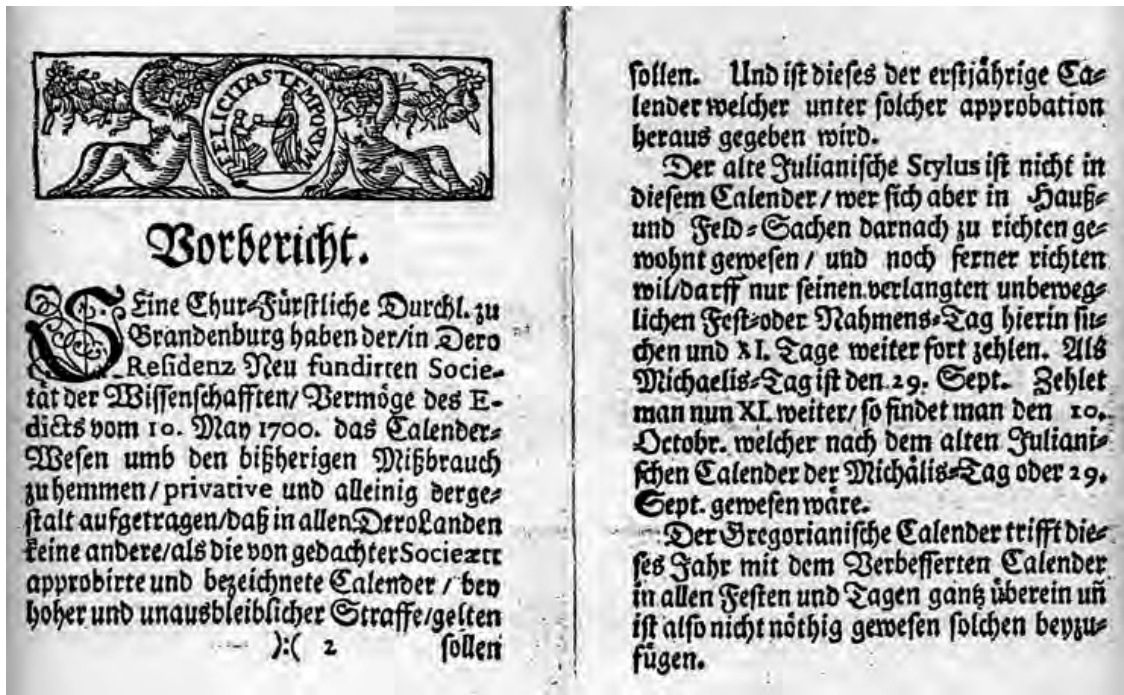 FELICITAS TEMPORUM
Vorbericht.
SEine Chur-Fürstliche Durchl. zu
Brandenburg haben der/in Dero
Residenz Neu fundirten Socie-
tät der Wissenschafften/ Vermöge des E-
dicts vom 10. May 1700. das Calender-
Wesen umb den bißherigen Mißbrauch
zu hemmen/ privative und alleinig derge-
stalt aufgetragen/daß in allen Dero Landen
keine andere/als die von gedachter Societætt
approbirte und bezeichnete Calender / bey
hoher und unausbleiblicher Straffe/gelten
):( 2 sollen
sollen. Und ist dieses der erstjährige Ca-
lender welcher unter solcher approbation
heraus gegeben wird.
Der alte Julianische Stylus ist nicht in
diesem Calender / wer sich aber in Hauß-
und Feld-Sachen darnach zu richten ge-
wohnt gewesen / und noch ferner richten
wil/darff nur seinen verlangten unbeweg-
lichen Fest-oder Nahmens-Tag hierin su-
chen und XI. Tage weiter fort zehlen. Als
Michaelis-Tag ist den 29. Sept. Zehlet
man nun XI. weiter/ so findet man den 10.
Octobr. welcher nach dem alten Juliani-
schen Calender der Michälis-Tag oder 29.
Sept. gewesen wäre.
Der Gregorianische Calender trifft die-
ses Jahr mit dem Verbesserten Calender
in allen Festen und Tagen gantz überein uñ
ist also nicht nöthig gewesen solchen beyzu-
fügen.